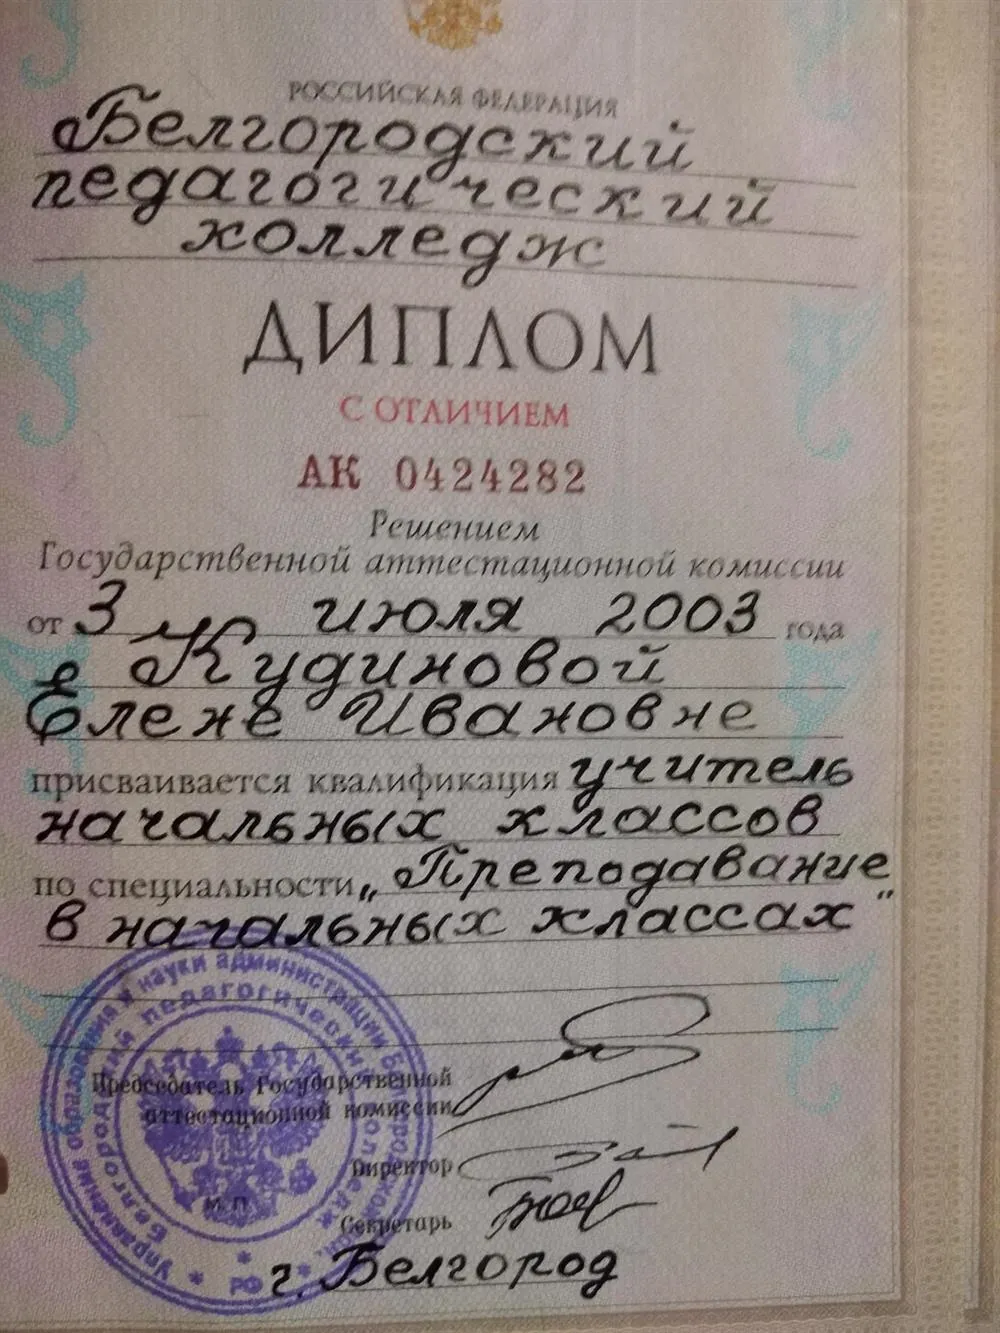 РОССИЙСКАЯ ФЕДЕРАЦИЯ
Белгородский
педагогический
колледж
ДИПЛОМ
С ОТЛИЧИЕМ
АК 0424282
Решением
Государственной аттестационной комиссии
от 3 июля 2003 года
Кудиновой
Елене Ивановне
присваивается квалификация учитель
начальных классов
по специальности „Преподавание
в начальных классах"
Управление образования и науки администрации Белгородской
Белгородский педагогический колледж
Председатель Государственной
аттестационной комиссии
Директор
М.П.
Секретарь
РФ
г. Белгород